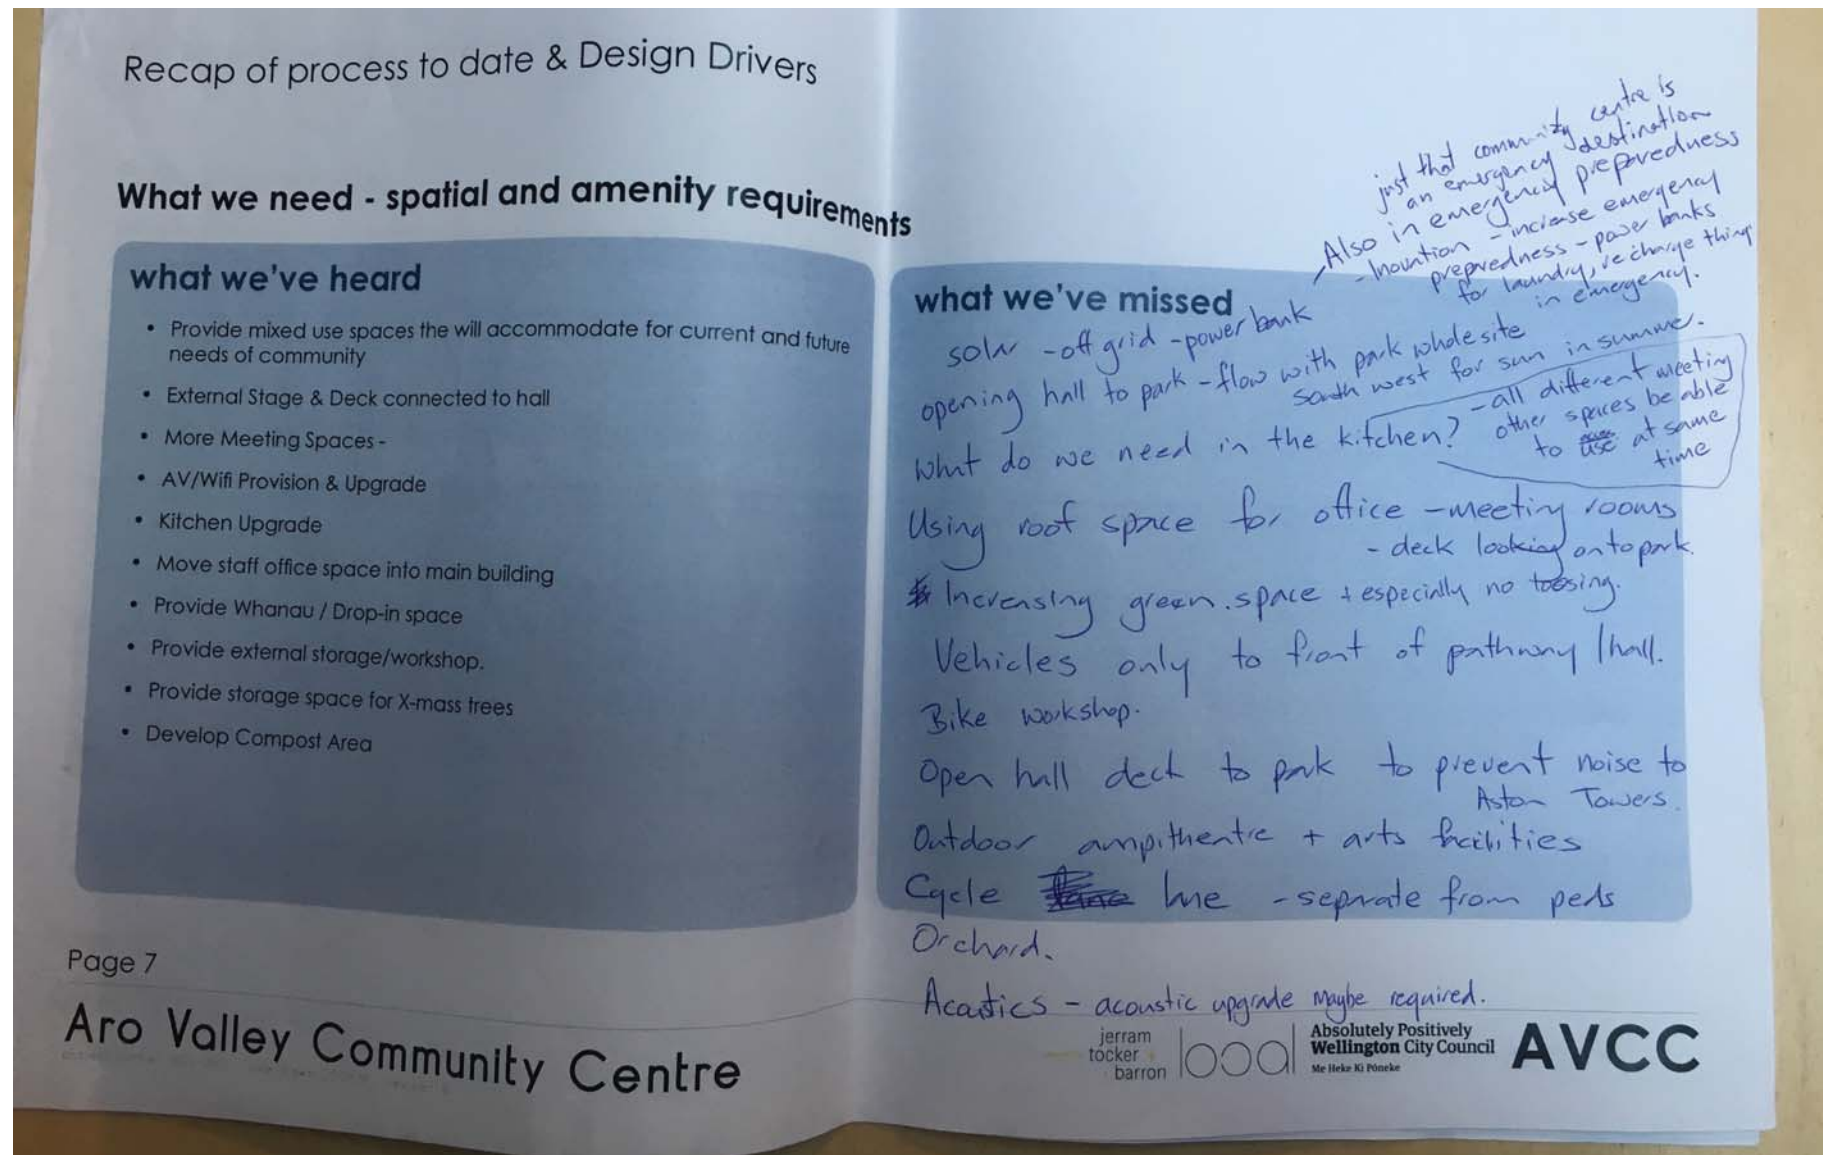 Recap of process to date & Design Drivers
What we need - spatial and amenity requirements
what we've heard
• Provide mixed use spaces the will accommodate for current and future
needs of community
• External Stage & Deck connected to hall
• More Meeting Spaces -
• AV/Wifi Provision & Upgrade
• Kitchen Upgrade
• Move staff office space into main building
• Provide Whanau / Drop-in space
• Provide external storage/workshop.
• Provide storage space for X-mass trees
• Develop Compost Area
just that community centre is
an emergency destination
Also in emergency preparedness
- Inovation - increase emergency
prepredness - power banks
for laundry, recharge thing
in emergency.
what we've missed
solar - off grid - power bank
opening hall to park - flow with park whole site
South west for sun in summer.
What do we need in the kitchen?
- all different meeting
other spaces be able
to use at same
time
Using roof space for office - meeting rooms
- deck looking onto park.
Increasing green space + especially no
Vehicles only to front of pathway / hall.
Bike workshop.
Open hall deck to park to prevent noise to
Aston Towers.
Outdoor ampitheatre + arts facilities
Cycle lane - separate from peds
Orchard.
Acoustics - acoustic upgrade maybe required.
Page 7
Aro Valley Community Centre
jerram
tocker
barron
boa
Absolutely Positively
Wellington City Council
Me Heke Ki Pōneke
AVCC